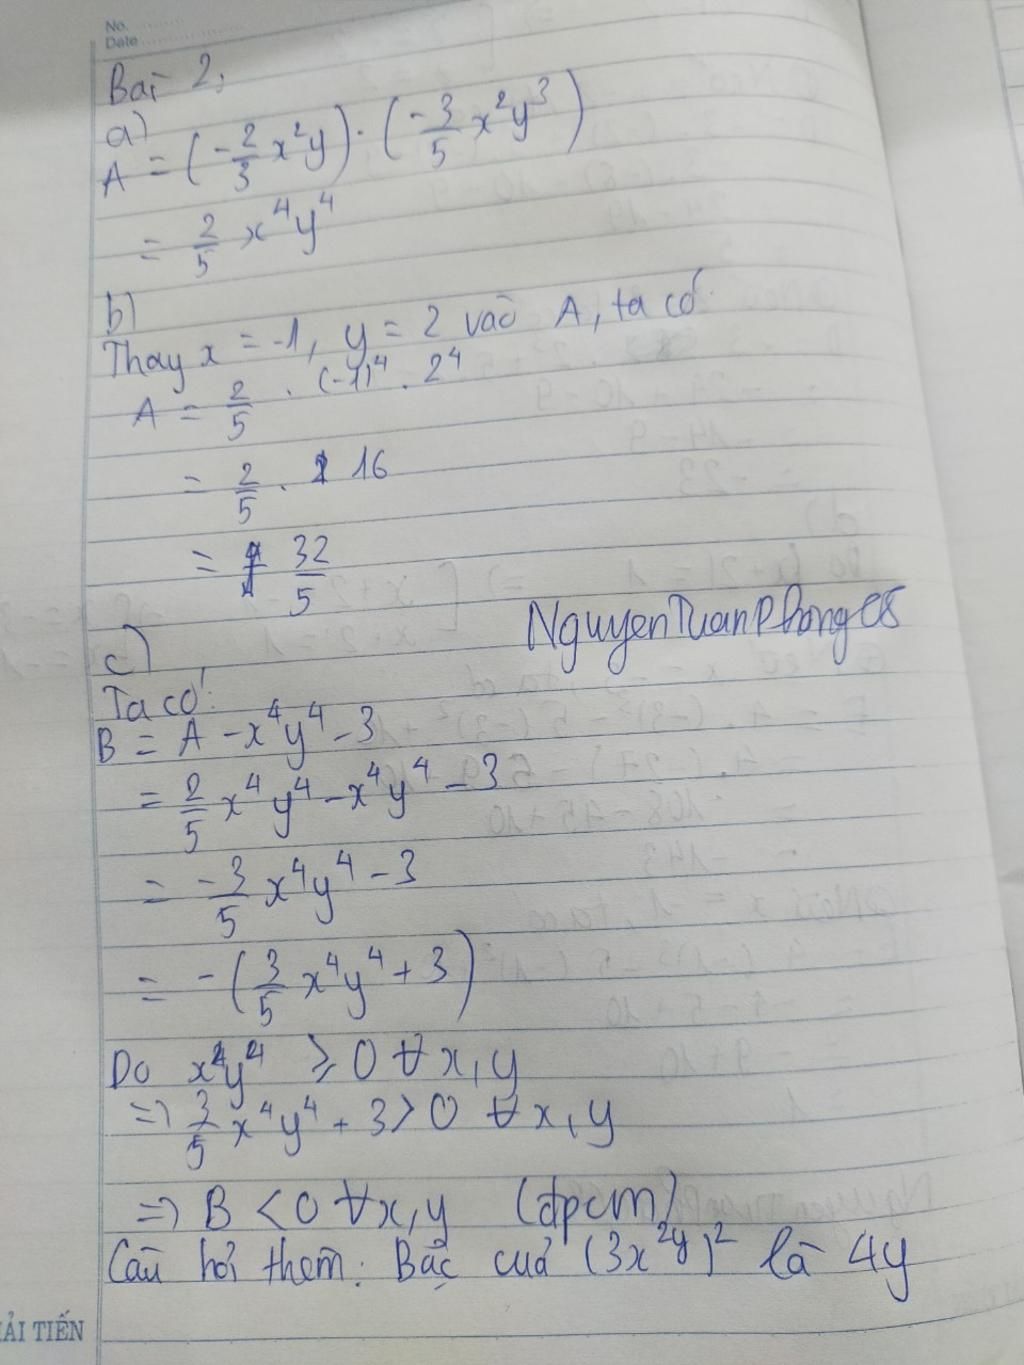 No.
Date
Bài 2:
a)
A = (-2/3 x²y) · (-3/5 x²y³)
= 2/5 x⁴y⁴
b)
Thay x = -1, y = 2 vào A, ta có
A = 2/5 . (-1)⁴ . 2⁴
= 2/5 . 16
= 32/5
NguyenTuanPhong
c)
Ta có:
B = A - x⁴y⁴ - 3
= 2/5 x⁴y⁴ - x⁴y⁴ - 3
= -3/5 x⁴y⁴ - 3
= -(3/5 x⁴y⁴ + 3)
Do x⁴y⁴ ⩾ 0 ∀x,y
=> 3/5 x⁴y⁴ + 3 > 0 ∀x,y
=> B < 0 ∀x,y (đpcm)
Câu hỏi thêm: Bậc của (3x²ʸ)² là 4y
ẢI TIẾN